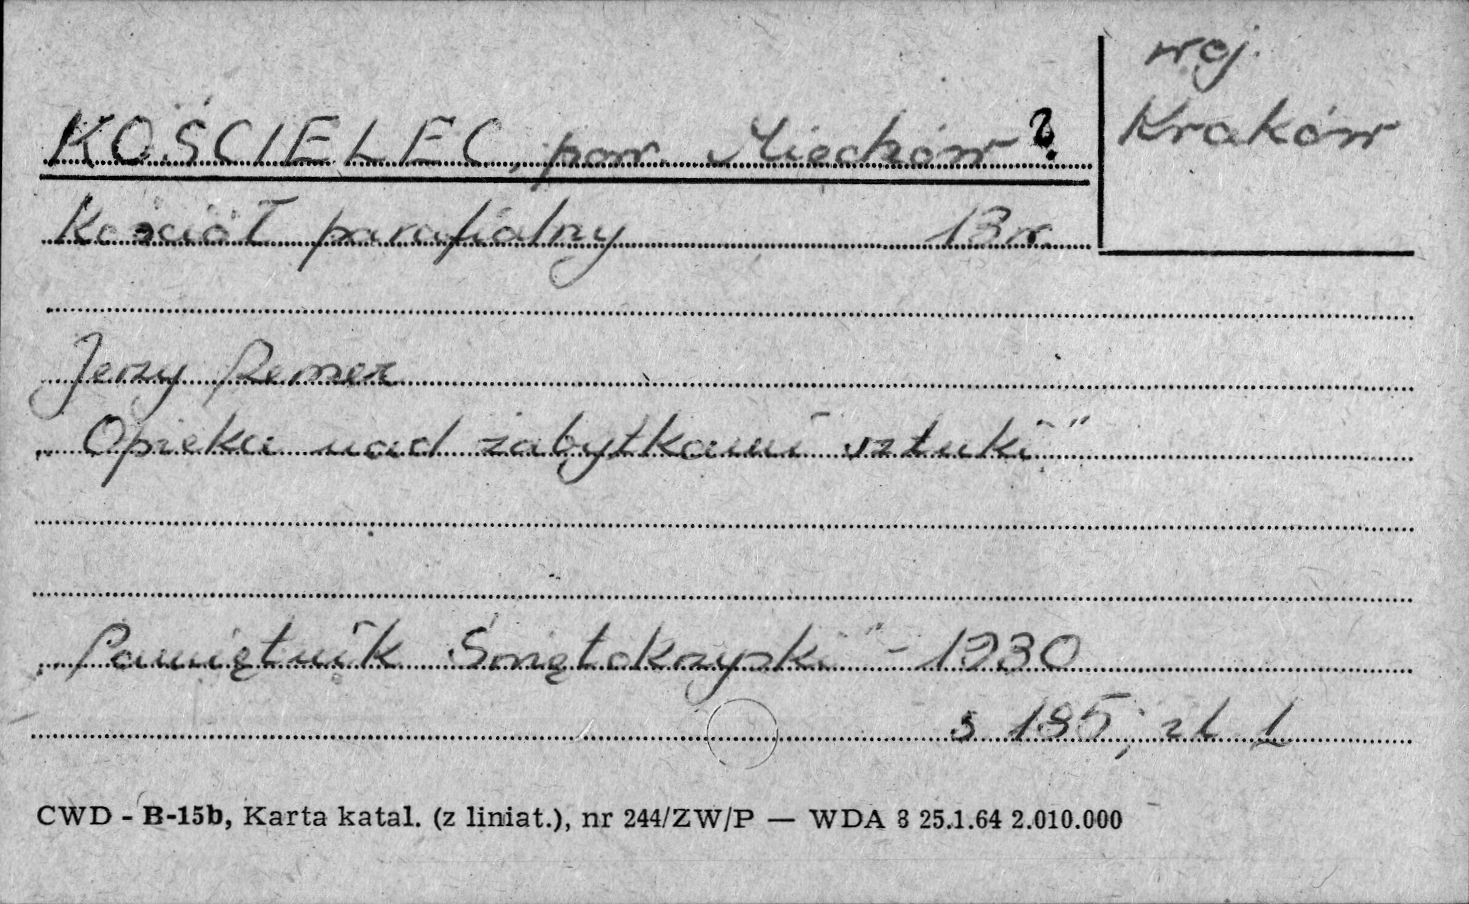 woj.
Kraków
KOŚCIELEC, pow. Miechów ?
Kościół parafialny 13 w.
Jerzy Remer
„Opieka nad zabytkami sztuki"
„Pamiętnik Świętokrzyski" - 1930
s 185; zł 1
CWD - B-15b, Karta katal. (z liniat.), nr 244/ZW/P — WDA 8 25.1.64 2.010.000